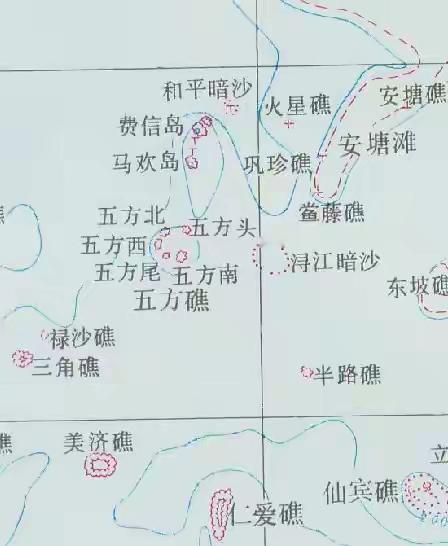 和平暗沙
火星礁
安塘礁
费信岛
安塘滩
马欢岛
巩珍礁
鲎藤礁
五方北
五方头
礁
五方西
五方尾
五方南
浔江暗沙
五方礁
东坡礁
禄沙礁
三角礁
半路礁
礁
美济礁
立
仙宾礁
仁爱礁